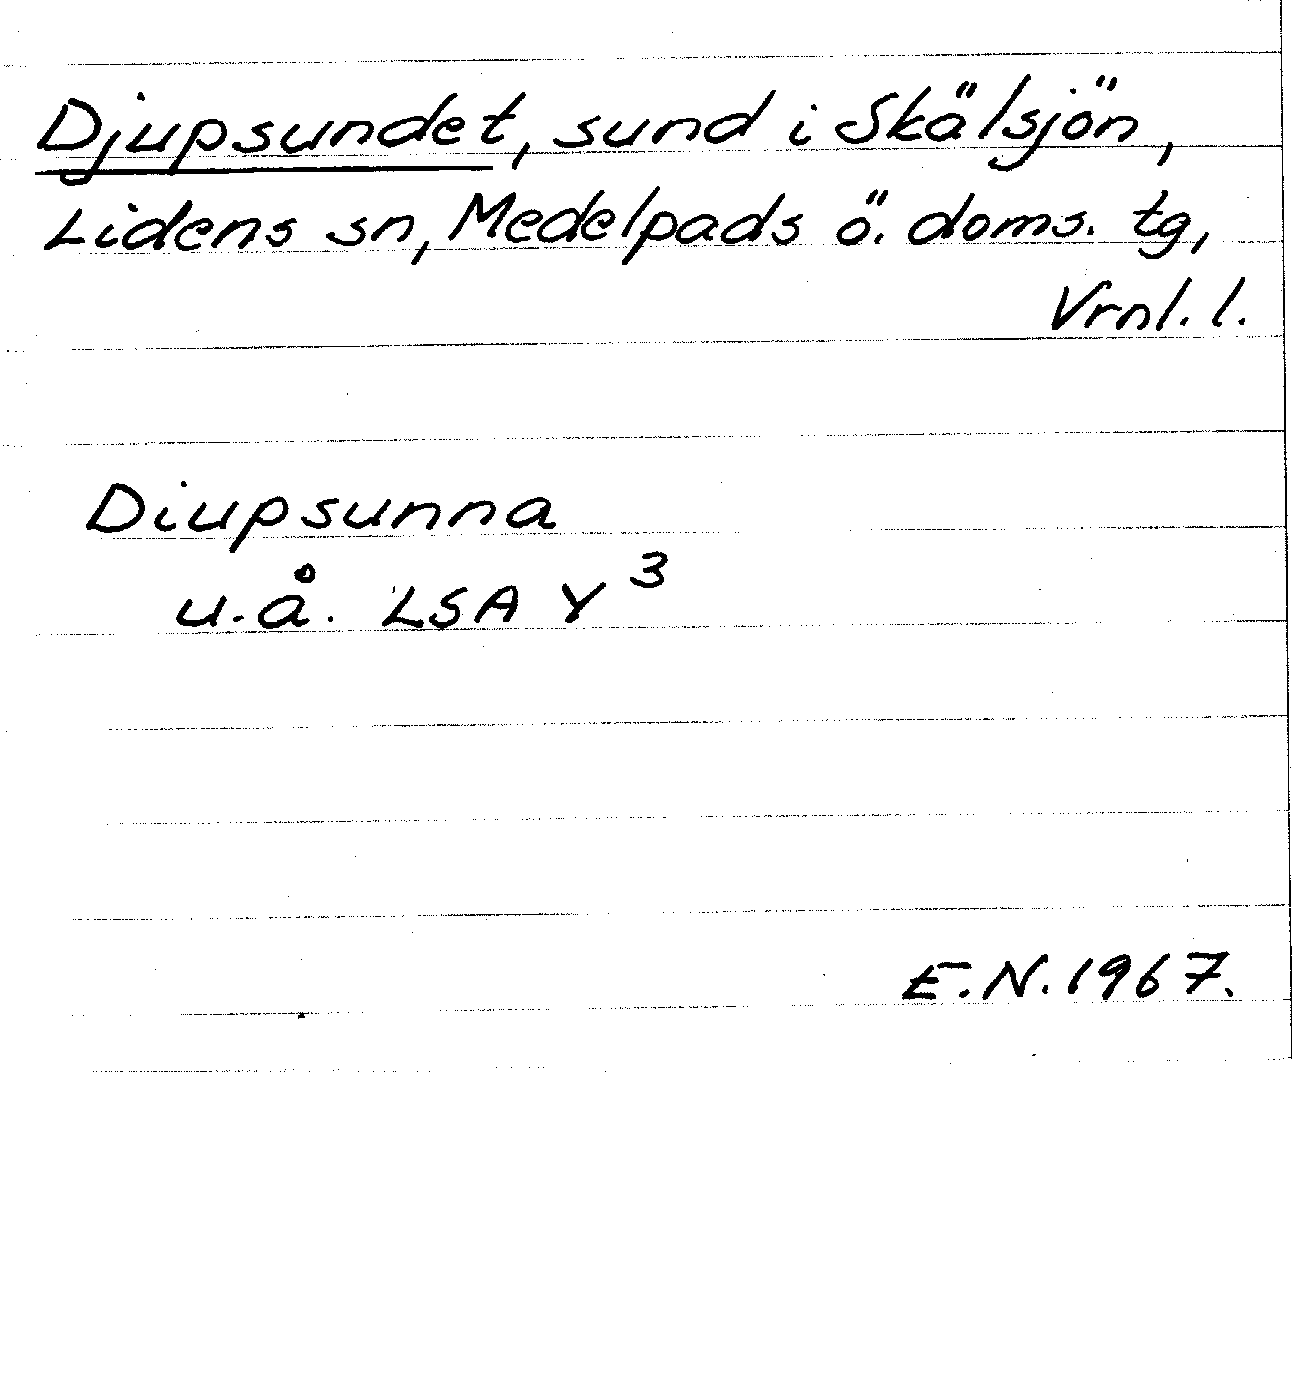 Djupsundet, sund i Skälsjön,
Lidens sn, Medelpads ö. doms. tg,
Vrnl. l.
Diupsunna
u.å. LSA Y 3
E.N. 1967.